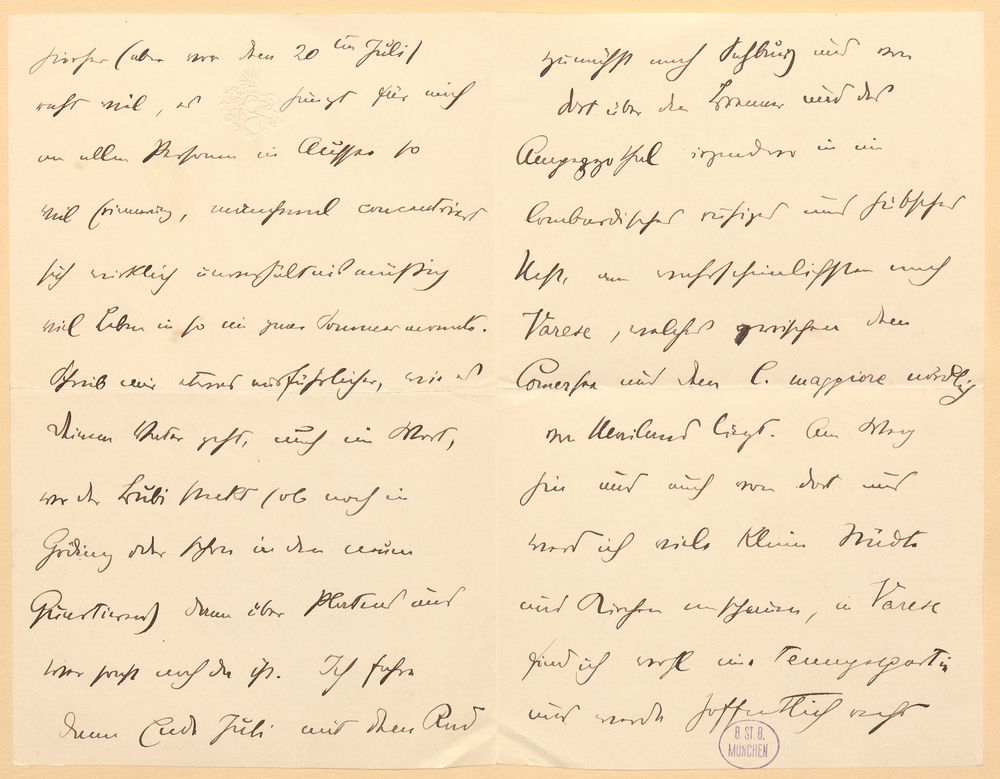 hierher (aber vor dem 20ten Juli)
recht viel, es hängt für mich
an allen Personen in Aussee so
viel Erinnerung, manchmal concentriert
sich wirklich unverhältnismäßig
viel Leben in so ein paar Sommermonate.
Schreib mir etwas ausführlicher, wie es
Deinem Vater geht, auch ein Wort,
wo der Bubi steckt (ob noch in
Göding oder schon in dem neuen
Quartierend) dann über und
wer sonst noch da ist. Ich fahre
dann Ende Juli mit dem Rad
zunächst nach Salzburg und von
dort über den Brenner und das
Ampezzothal irgendwo in ein
lombardisches ruhiges und hübsches
Nest, am wahrscheinlichsten nach
Varese, welches zwischen dem
Comersee und dem L. maggiore nördlich
von Mailand liegt. Am Weg
hin und auch von dort aus
werd ich viele kleine Städte
und Kirchen anschauen, in Varese
find ich wohl eine Tennyspartie
und werde hoffentlich recht
B. ST. B.
MÜNCHEN